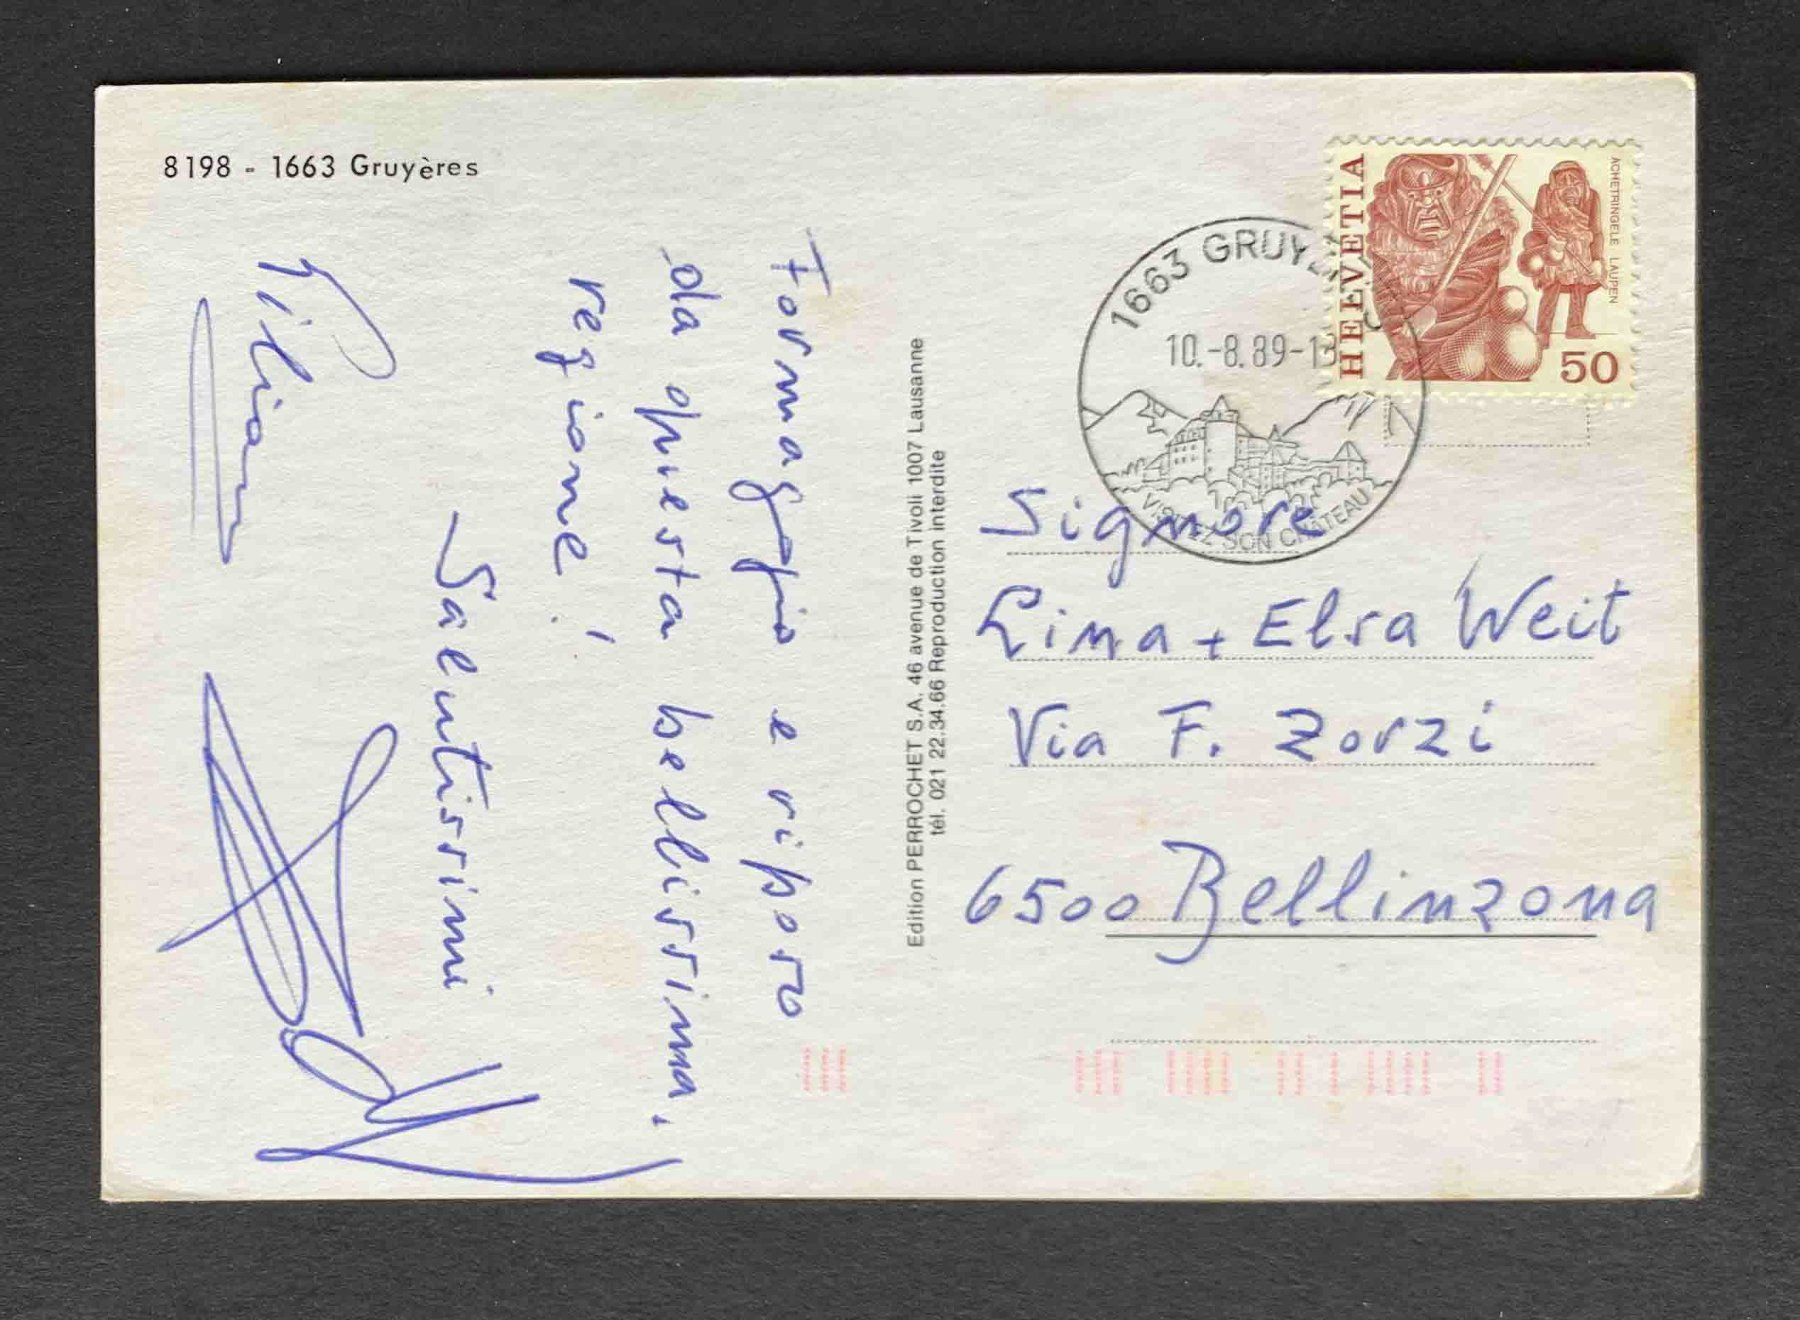 8198 - 1663 Gruyères
Formaggio e riposo
da questa bellissima,
regione!
Salutissimi
Edition PERROCHET S.A. 46 avenue de Tivoli 1007 Lausanne
tél. 021 22.34.66 Reproduction interdite
1663 GRUYÈRES
10.-8.89-13
VISITEZ SON CHÂTEAU
HELVETIA
ACHETRINGELE LAUPEN
50
Signore
Lina + Elsa Weit
Via F. Zorzi
6500 Bellinzona